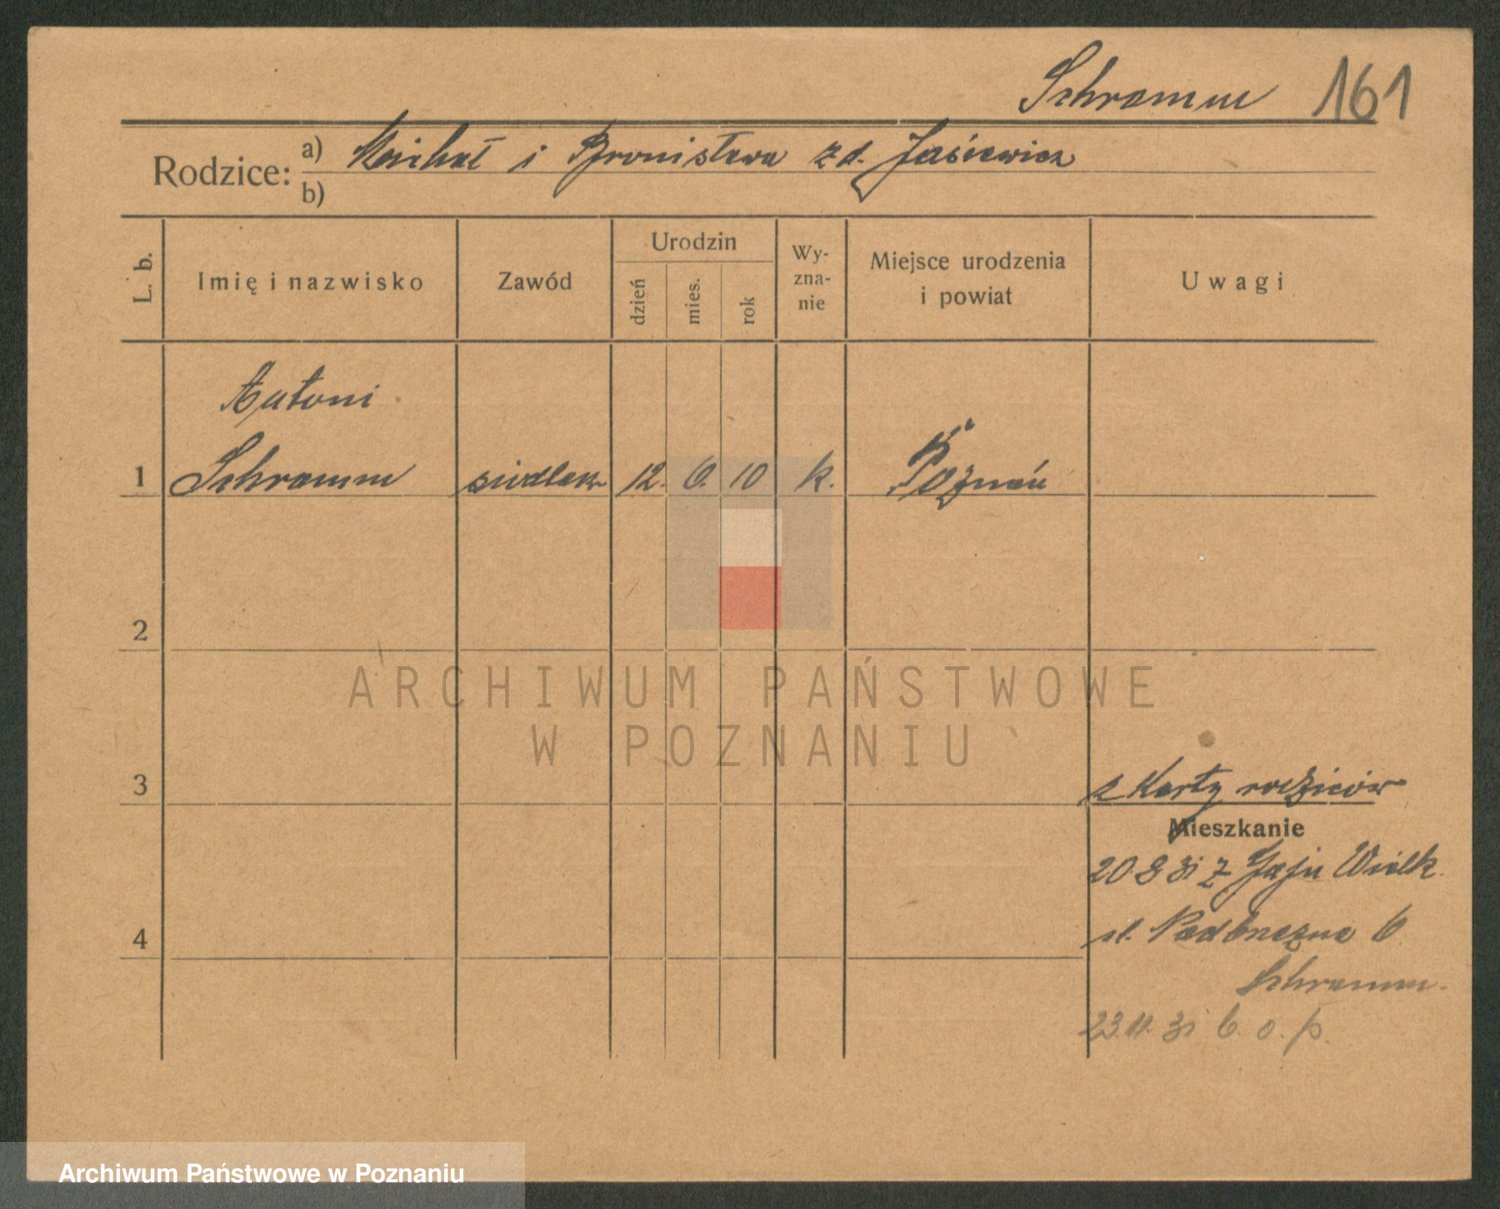 Schramm 161
Rodzice: a) Michał i Bronisława z d. Jasiewicz
b)
L. b. Imię i nazwisko Zawód Urodzin dzień mies. rok Wyznanie Miejsce urodzenia i powiat Uwagi
Antoni
1 Schramm 12. 6. 10 k. Poznań
2
ARCHIWUM PAŃSTWOWE
W POZNANIU
3 z Karty rodziców
Mieszkanie
20 8 31 z Jaju Wielk.
4 ul. 6
Schramm.
23. 11. 31 b. o. p.
Archiwum Państwowe w Poznaniu